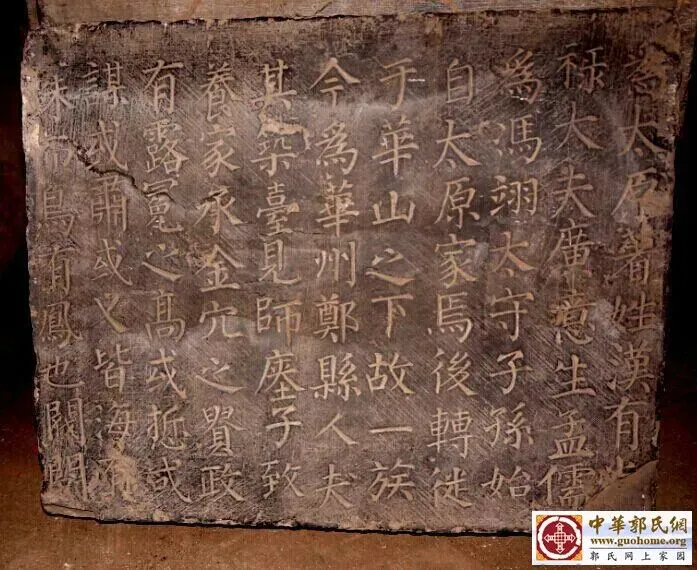 為太原著姓漢有
祿大夫廣意生孟儒
為馮翊太守子孫始
自太原家焉後轉徙
于華山之下故一族
今為華州鄭縣人夫
其築臺見師瘞子致
養家承金穴之貴政
有露冕之高或悊或
謀或肅或乂皆海有
珠而鳥有鳳也閥閱
中華郭氏網
www.guohome.org
郭氏网上家园